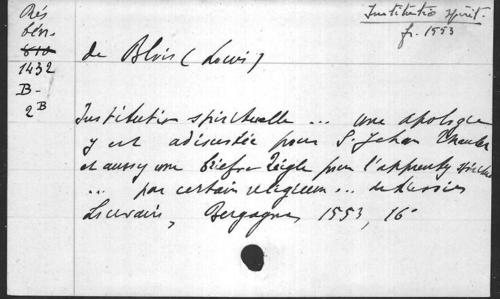 Institutio spirit.
fr. 1553
Rés
bén.
610
1432
B-
2B
de Blois (Louis)
Institution spirituelle ... une apologie
y est adioustée pour S. Jehan
et aussy une briefve Reigle pour l'apprenty
... par certain religieux ...
Louvain, Bergagne, 1553, 16°